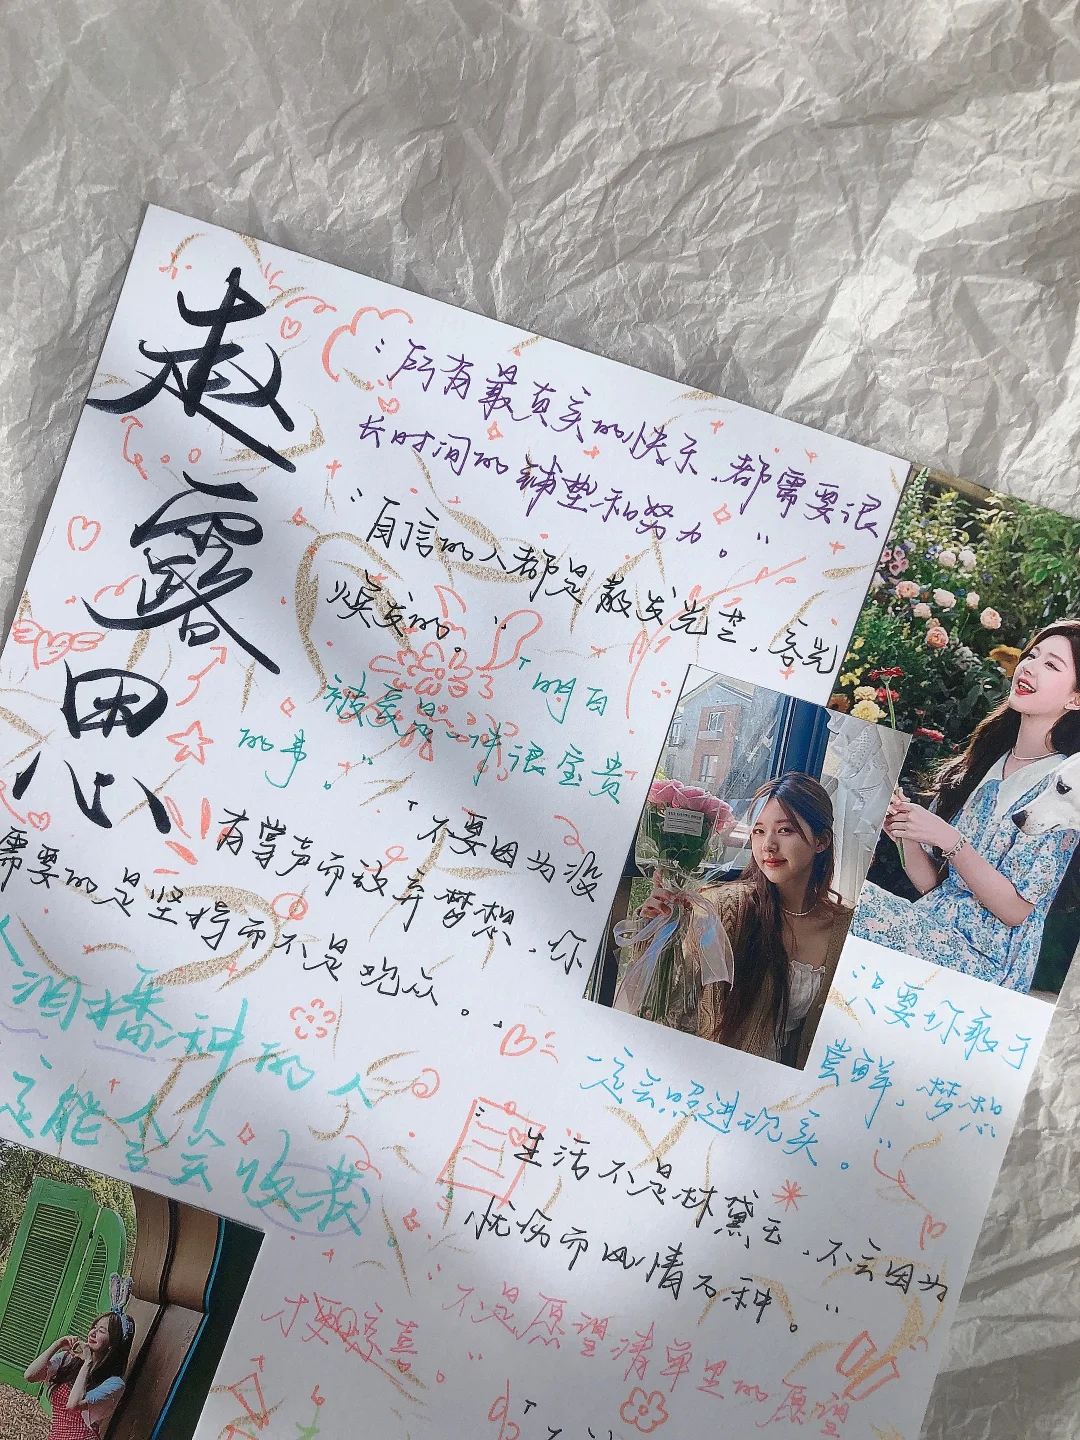 赵露思
“所有最真实的快乐，都需要很
长时间的铺垫和努力。”
“自信的人都是散发光芒，容光
焕发的。”
「明白
被爱是一件很宝贵
的事。」
「不要因为没
有掌声而放弃梦想，你
需要的是坚持而不是观众。」
泪播种的人
定能含笑收获
只要你敢于
尝鲜，梦想
一定会照进现实。”
生活不是林黛玉，不会因为
忧伤而风情万种。”
“不是愿望清单里的愿望
才更惊喜。”